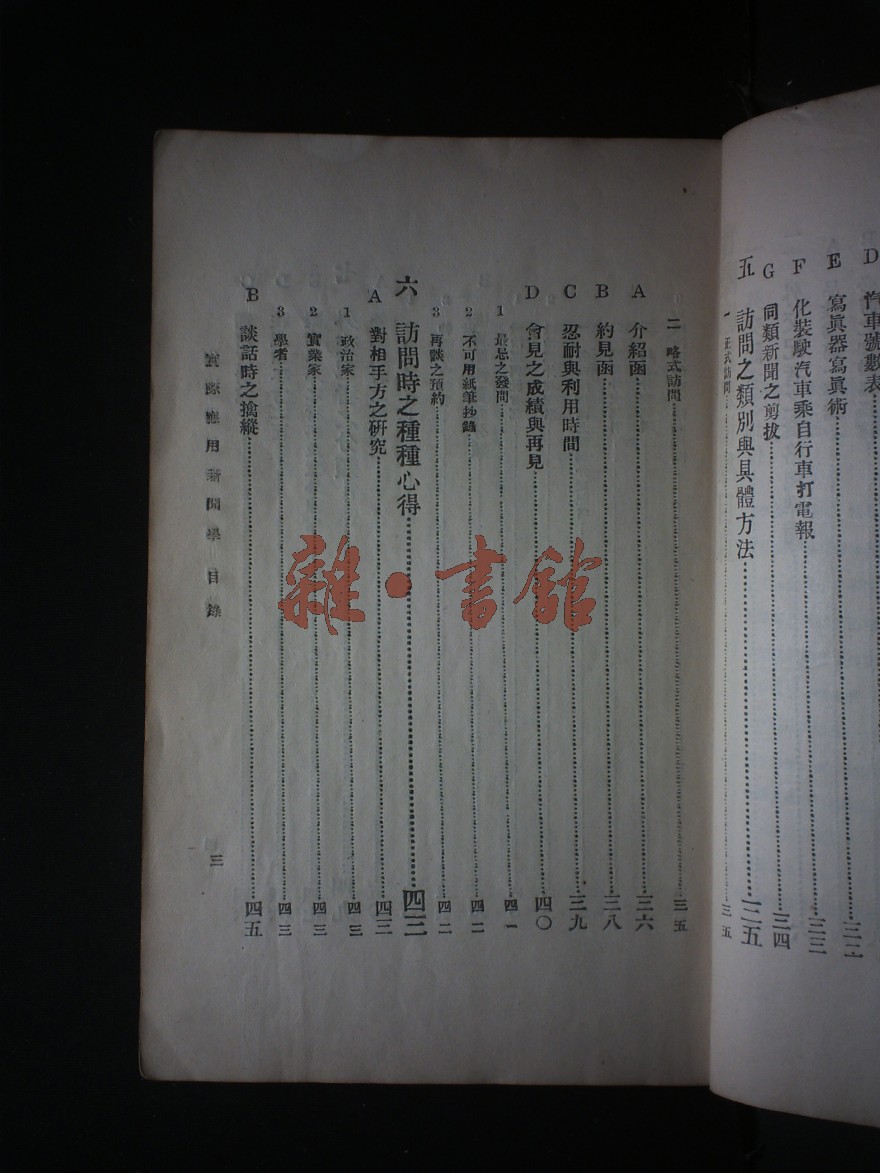 D 汽車號數表
E 寫眞器寫眞術……三二
F 化裝駛汽車乘自行車打電報……三三
G 同類新聞之剪拔……三四
五 訪問之類別與具體方法……三五
一 正式訪問……三五
二 略式訪問……三五
A 介紹函……三六
B 約見函……三八
C 忍耐與利用時間……三九
D 會見之成績與再見……四〇
1 最忌之發問……四一
2 不可用紙筆抄錄……四二
3 再談之預約……四二
六 訪問時之種種心得……四三
A 對相手方之研究……四三
1 政治家……四三
2 實業家……四三
3 學者……四三
B 談話時之擒縱……四五
實際應用新聞學 目錄 三
雜·書館